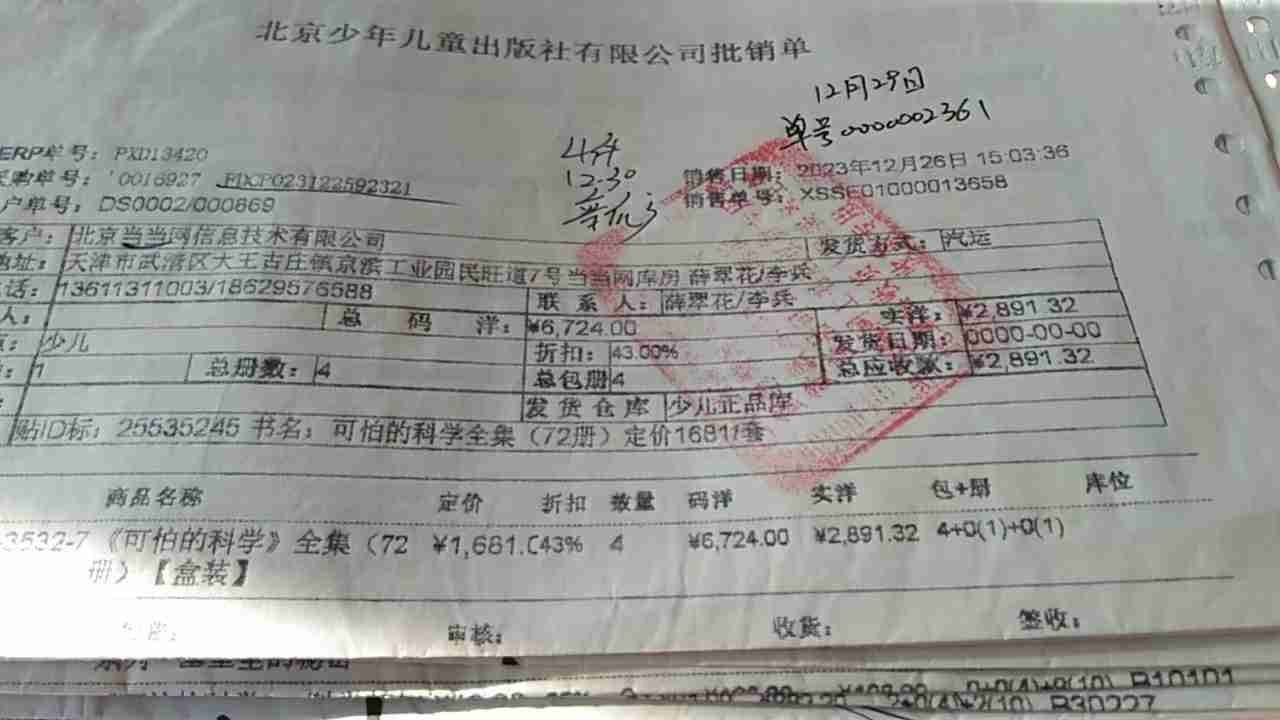 北京少年儿童出版社有限公司批销单
12月29日
单号0000002361
4件
12.30
ERP单号: PXD13420
采购单号: '0016927 PDCP023122592321
户单号: DS0002/000869
销售日期: 2023年12月26日 15:03:36
销售单号: XSSE01000013658
客户: 北京当当网信息技术有限公司 发货方式: 汽运
地址: 天津市武清区大王古庄镇京滨工业园民旺道7号当当网库房 薛翠花/李兵
电话: 13611311003/18629576588 联 系 人: 薛翠花/李兵
人: 总 码 洋: ¥6,724.00 实洋: ¥2,891.32
少儿 折扣: 43.00% 发货日期: 0000-00-00
1 总册数: 4 总包册 4 总应收款: ¥2,891.32
发 货 仓 库 少儿正品库
贴ID标: 25535245 书名: 可怕的科学全集 (72册) 定价1681/套
商品名称 定价 折扣 数量 码洋 实洋 包+册 库位
3532-7 《可怕的科学》全集 (72 ¥1,681.0 43% 4 ¥6,724.00 ¥2,891.32 4+0(1)+0(1)
册) 【盒装】
审核: 收货: 签收:
B10101
B30227